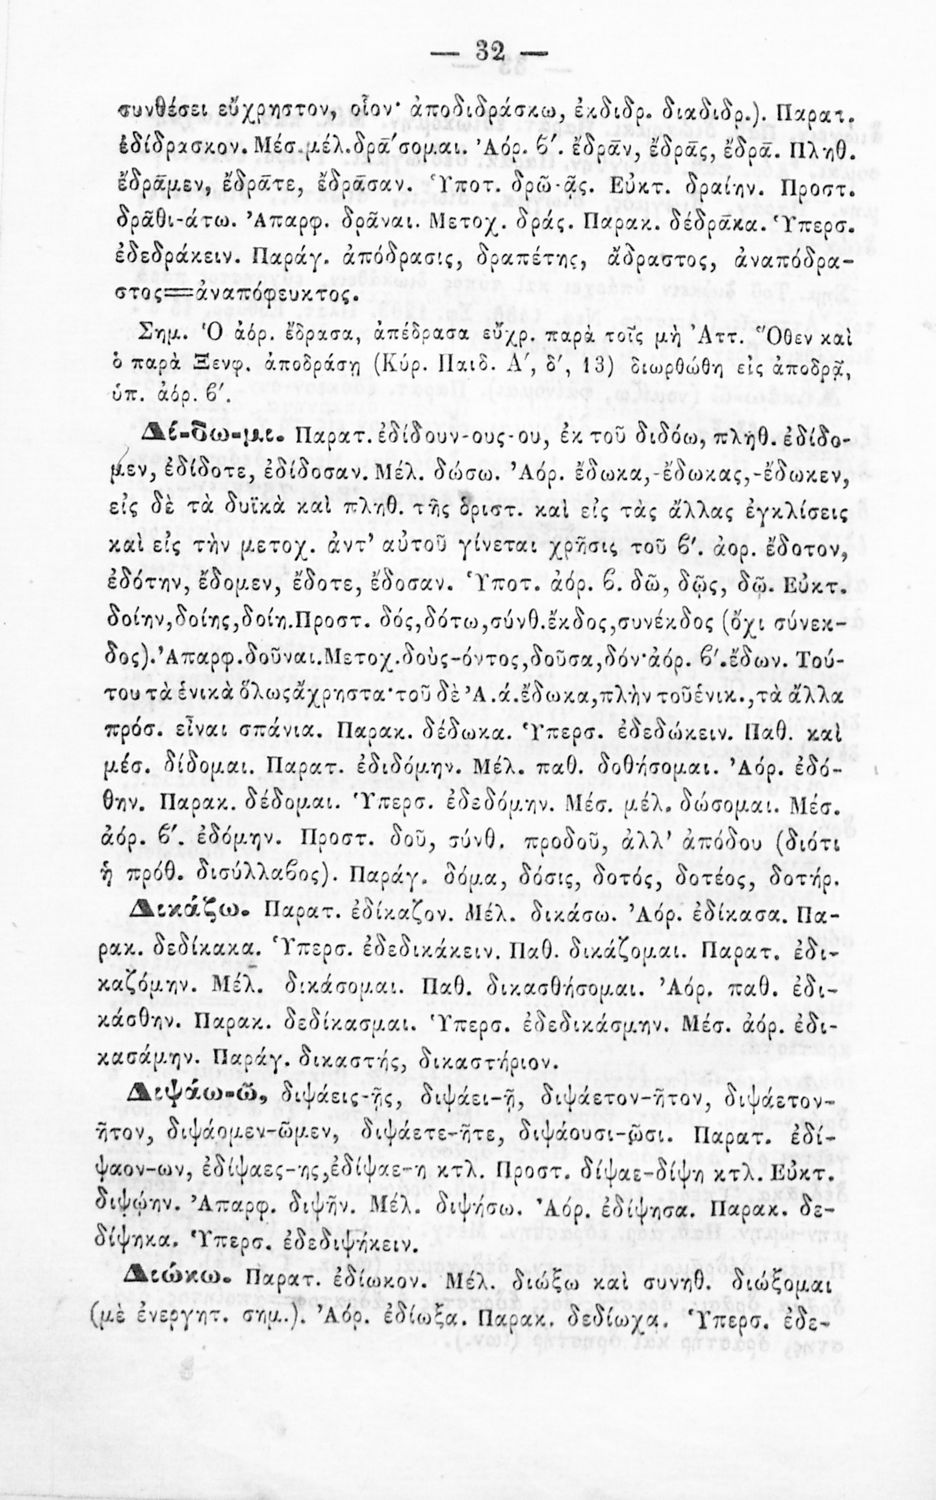 — 32 —
συνθέσει εὔχρηστον, οἷον· ἀποδιδράσκω, ἐκδιδρ. διαδιδρ.). Παρατ.
ἐδίδρασκον. Μέσ. μέλ. δρᾱ́σομαι. Ἀόρ. ϐ′. ἔδρᾱν, ἔδρᾱς, ἔδρᾱ. Πληθ.
ἔδρᾱμεν, ἔδρᾱτε, ἔδρᾱσαν. Ὑποτ. δρῶ-ᾷς. Εὐκτ. δραίην. Προστ.
δρᾶθι-άτω. Ἀπαρφ. δρᾶναι. Μετοχ. δράς. Παρακ. δέδρᾱκα. Ὑπερσ.
ἐδεδράκειν. Παράγ. ἀπόδρασις, δραπέτης, ἄδραστος, ἀναπόδρα-
στος=ἀναπόφευκτος.
Σημ. Ὁ ἀόρ. ἔδρασα, ἀπέδρασα εὔχρ. παρὰ τοῖς μὴ Ἀττ. Ὅθεν καὶ
ὁ παρὰ Ξενφ. ἀποδράσῃ (Κύρ. Παιδ. Α′, δ′, 13) διωρθώθη εἰς ἀποδρᾷ,
ὑπ. ἀόρ. ϐ′.
Δί-δω-μι. Παρατ. ἐδίδουν-ους-ου, ἐκ τοῦ διδόω, πληθ. ἐδίδο-
μεν, ἐδίδοτε, ἐδίδοσαν. Μέλ. δώσω. Ἀόρ. ἔδωκα,-ἔδωκας,-ἔδωκεν,
εἰς δὲ τὰ δυϊκὰ καὶ πληθ. τῆς ὁριστ. καὶ εἰς τὰς ἄλλας ἐγκλίσεις
καὶ εἰς τὴν μετοχ. ἀντ' αὐτοῦ γίνεται χρῆσις τοῦ ϐ′. ἀορ. ἔδοτον,
ἐδότην, ἔδομεν, ἔδοτε, ἔδοσαν. Ὑποτ. ἀόρ. ϐ. δῶ, δῷς, δῷ. Εὐκτ.
δοίην, δοίης, δοίη. Προστ. δός, δότω, σύνθ. ἔκδος, συνέκδος (ὄχι σύνεκ-
δος). Ἀπαρφ. δοῦναι. Μετοχ. δοὺς-όντος, δοῦσα, δόν· ἀόρ. ϐ′. ἔδων. Τού-
του τὰ ἑνικὰ ὅλως ἄχρηστα· τοῦ δὲ Ἀ. ά. ἔδωκα, πλὴν τοῦ ἑνικ., τὰ ἄλλα
πρόσ. εἶναι σπάνια. Παρακ. δέδωκα. Ὑπερσ. ἐδεδώκειν. Παθ. καὶ
μέσ. δίδομαι. Παρατ. ἐδιδόμην. Μέλ. παθ. δοθήσομαι. Ἀόρ. ἐδό-
θην. Παρακ. δέδομαι. Ὑπερσ. ἐδεδόμην. Μέσ. μέλ. δώσομαι. Μέσ.
ἀόρ. ϐ′. ἐδόμην. Προστ. δοῦ, σύνθ. προδοῦ, ἀλλ' ἀπόδου (διότι
ἡ πρόθ. δισύλλαϐος). Παράγ. δόμα, δόσις, δοτός, δοτέος, δοτήρ.
Δικάζω. Παρατ. ἐδίκαζον. Μέλ. δικάσω. Ἀόρ. ἐδίκασα. Πα-
ρακ. δεδίκακα. Ὑπερσ. ἐδεδικάκειν. Παθ. δικάζομαι. Παρατ. ἐδι-
καζόμην. Μέλ. δικάσομαι. Παθ. δικασθήσομαι. Ἀόρ. παθ. ἐδι-
κάσθην. Παρακ. δεδίκασμαι. Ὑπερσ. ἐδεδικάσμην. Μέσ. ἀόρ. ἐδι-
κασάμην. Παράγ. δικαστής, δικαστήριον.
Διψάω-ῶ, διψάεις-ῇς, διψάει-ῇ, διψάετον-ῆτον, διψάετον-
ῆτον, διψάομεν-ῶμεν, διψάετε-ῆτε, διψάουσι-ῶσι. Παρατ. ἐδί-
ψαον-ων, ἐδίψαες-ης, ἐδίψαε-η κτλ. Προστ. δίψαε-δίψη κτλ. Εὐκτ.
διψῴην. Ἀπαρφ. διψῆν. Μέλ. διψήσω. Ἀόρ. ἐδίψησα. Παρακ. δε-
δίψηκα. Ὑπερσ. ἐδεδιψήκειν.
Διώκω. Παρατ. ἐδίωκον. Μέλ. διώξω καὶ συνηθ. διώξομαι
(μὲ ἐνεργητ. σημ.). Ἀόρ. ἐδίωξα. Παρακ. δεδίωχα. Ὑπερσ. ἐδε-